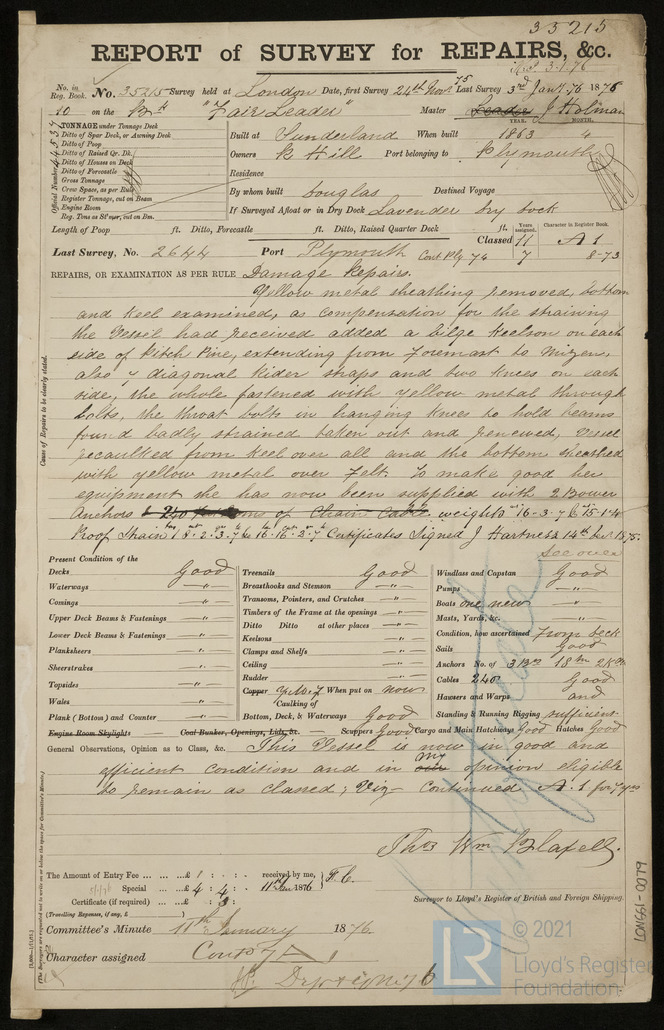 33215
REPORT of SURVEY for REPAIRS, &c.
No. in Reg. Book. No. 35215 Survey held at London Date, first Survey 24th Novr 75 Last Survey 3rd Jany 76 1876
10 on the Bk "Fair Leader" Master Leader J Holman
TONNAGE under Tonnage Deck
Ditto of Spar Deck, or Awning Deck
Ditto of Poop
Ditto of Raised Qr. Dk.
Ditto of Houses on Deck
Ditto of Forecastle
Gross Tonnage
Crew Space, as per Rule
Register Tonnage, cut on Beam
Engine Room
Reg. Tons as St'mer, cut on Bm.
Official Number
YEAR. MONTH.
Built at Sunderland When built 1863 4
Owners R Hill Port belonging to Plymouth
Residence
By whom built Douglas Destined Voyage
If Surveyed Afloat or in Dry Dock Lavender Dry Dock
Length of Poop ft. Ditto, Forecastle ft. Ditto, Raised Quarter Deck ft.
Years assigned. Character in Register Book.
Last Survey, No. 2644 Port Plymouth Cont Ply 74 Classed 11 A 1
7 8-73
REPAIRS, OR EXAMINATION AS PER RULE Damage Repairs.
Yellow metal sheathing removed, bottom
and keel examined, as compensation for the straining
the Vessel had received added a bilge keelson on each
side of Pitch Pine, extending from Foremast to Mizen,
also 7 diagonal rider straps and two knees on each
side, the whole fastened with yellow metal through
bolts, the throat bolts in hanging knees to hold beams
found badly strained taken out and renewed, Vessel
recaulked from keel over all and the bottom sheathed
with yellow metal over Felt. To make good her
equipment she has now been supplied with 2 Bower
Anchors & 240 of Chain Cable weights 16-3-7 & 15-1-4
Proof Strain 18-2-3-7 & 16-16-2-7 Certificates Signed J Hartness 14th 1875.
see over
Cause of Repairs to be clearly stated.
Present Condition of the
Decks Good
Waterways "
Comings "
Upper Deck Beams & Fastenings "
Lower Deck Beams & Fastenings "
Planksheers "
Sheerstrakes "
Topsides "
Wales "
Plank (Bottom) and Counter "
Treenails Good
Breasthooks and Stemson "
Transoms, Pointers, and Crutches "
Timbers of the Frame at the openings "
Ditto Ditto at other places "
Keelsons "
Clamps and Shelfs "
Ceiling "
Rudder "
Copper Y. M. & F When put on now
Caulking of
Bottom, Deck, & Waterways Good
Windlass and Capstan Good
Pumps "
Boats one new "
Masts, Yards, &c. "
Condition, how ascertained From Deck
Sails Good
Anchors No. of 3 Brs 1 Sm 2 Kgs
Cables 240 Good
Hawsers and Warps and
Standing & Running Rigging sufficient
Engine Room Skylights Coal Bunker, Openings, Lids, &c. Scuppers Good Cargo and Main Hatchways Good Hatches Good
General Observations, Opinion as to Class, &c. This Vessel is now in good and
efficient condition and in our my opinion eligible
to remain as classed; Viz Continued A.1 for 7 yrs
Thos Wm Blaxell.
The Amount of Entry Fee £ 1 : : received by me, F. C.
Special £ 4 : 4 : 11th Jan 1876
Certificate (if required) : 5 :
(Travelling Expenses, if any, £ )
Surveyor to Lloyd's Register of British and Foreign Shipping.
Committee's Minute 11th January 1876
Character assigned Contd 7 A 1
LON661-0079
© 2021
LR
Lloyd's Register
Foundation